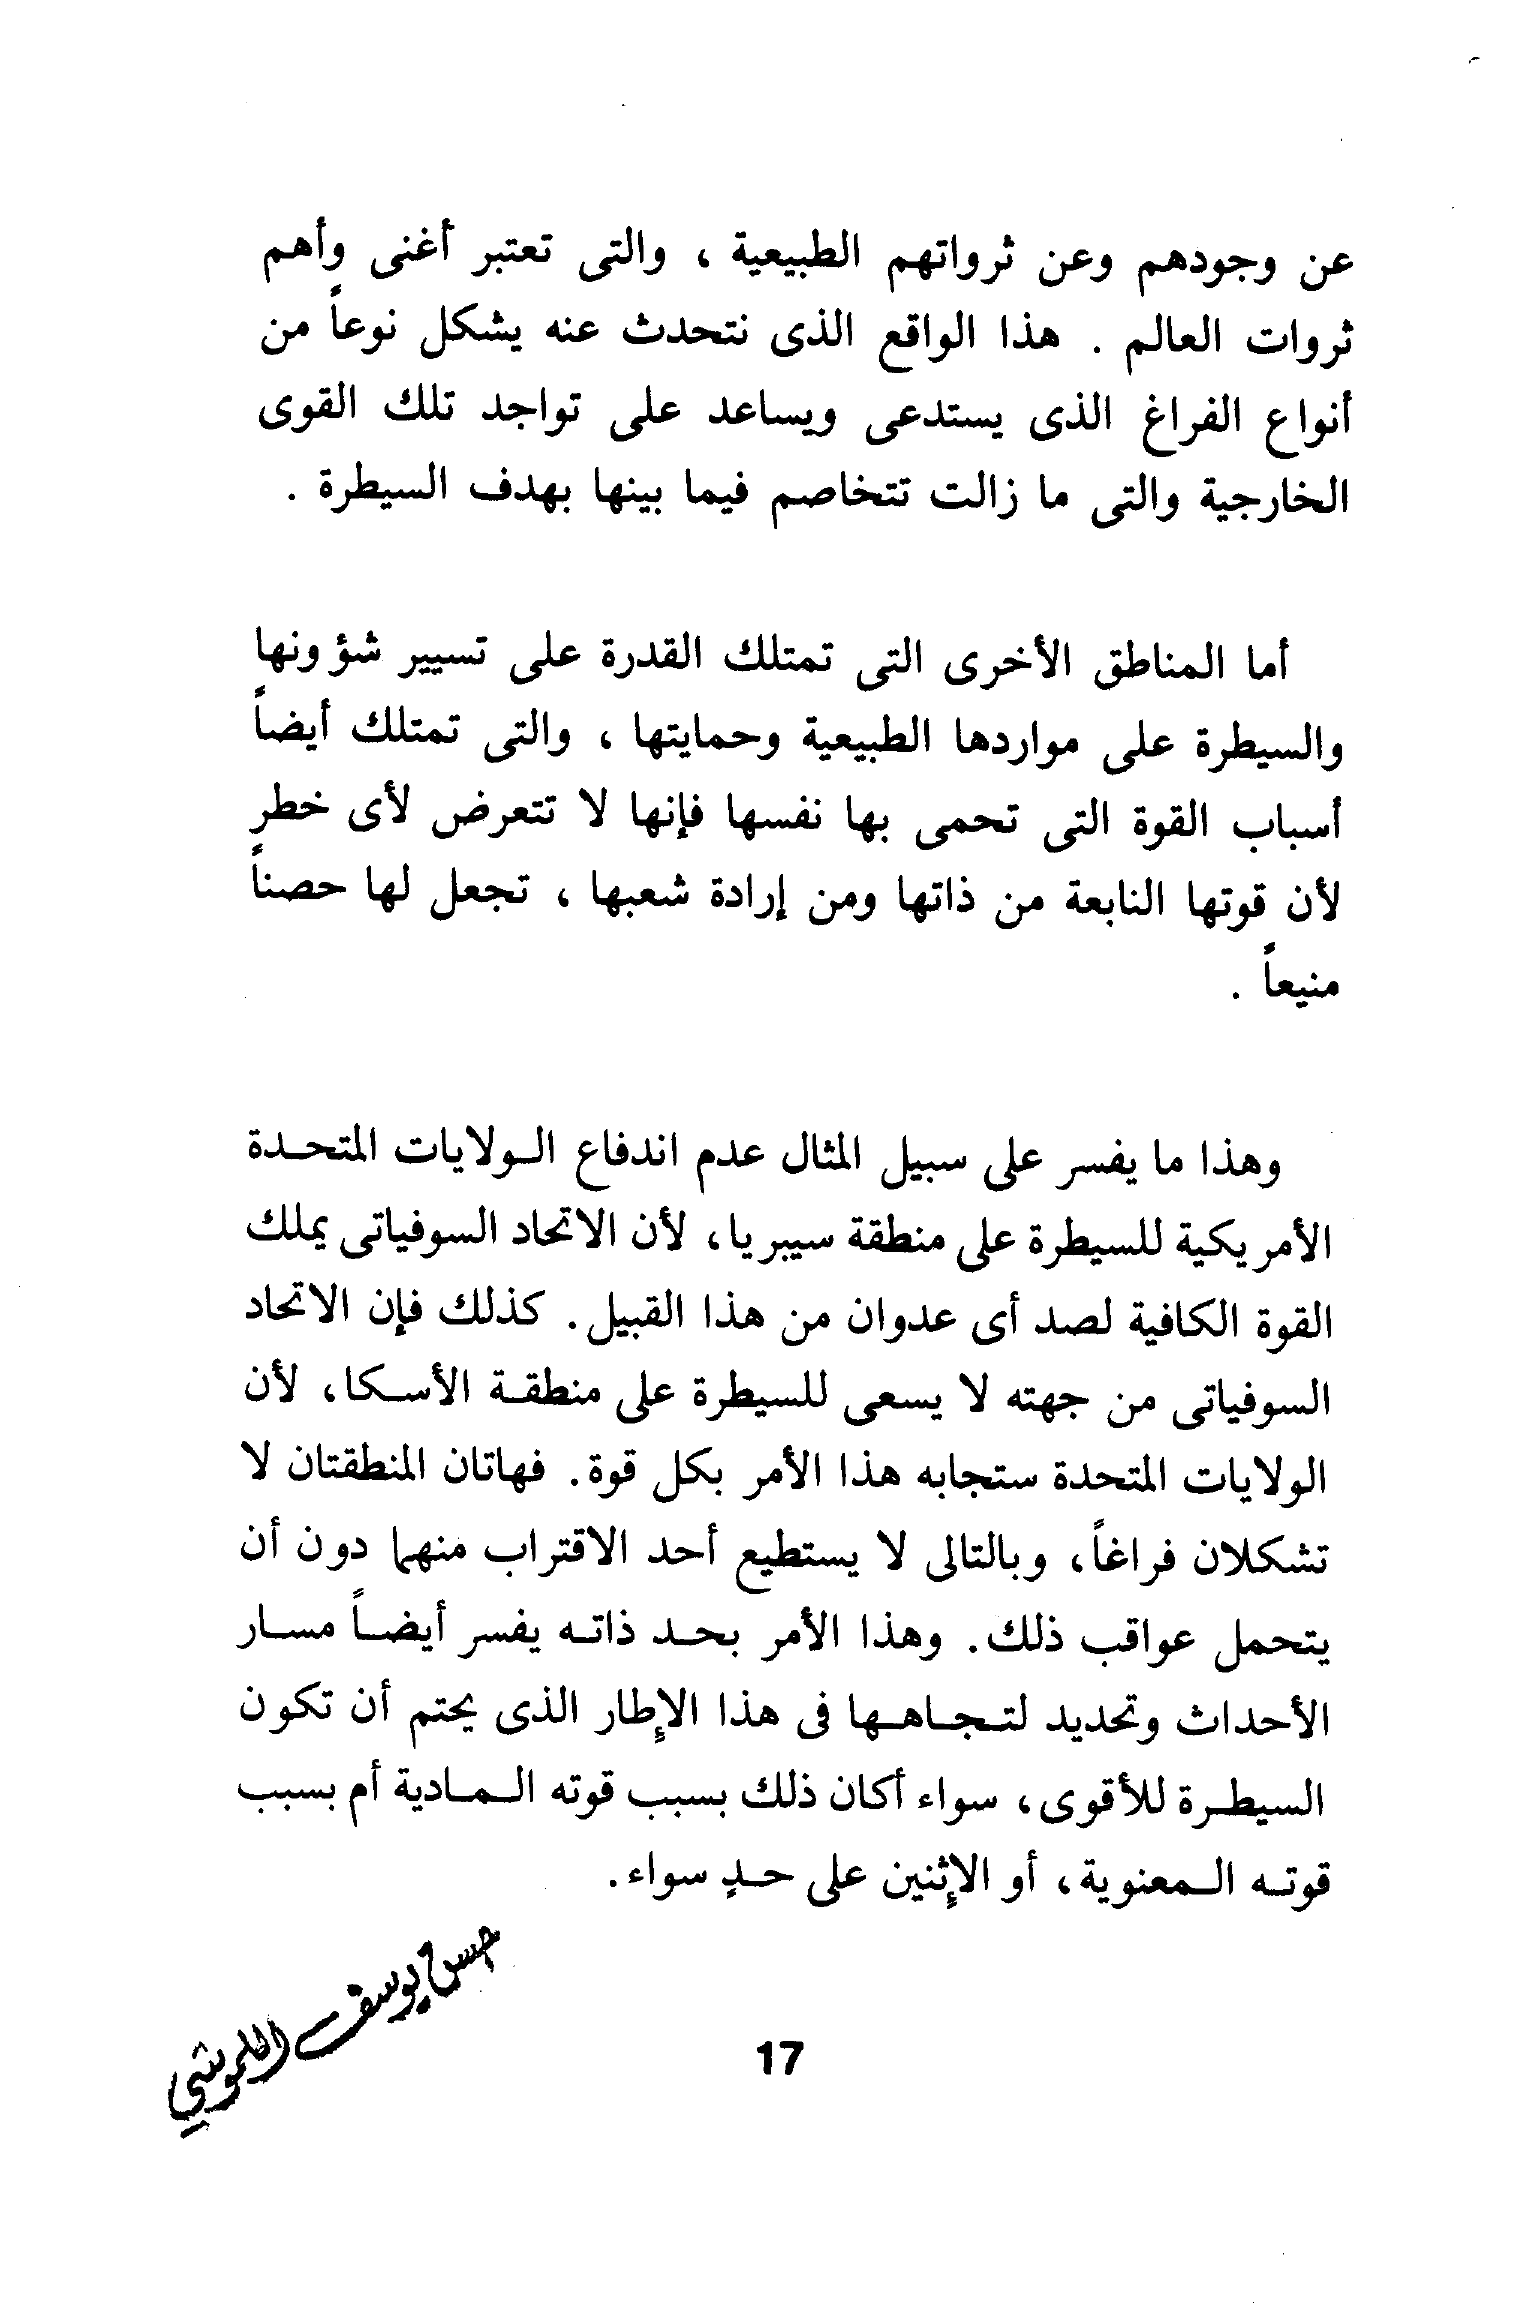 عن وجودهم وعن ثرواتهم الطبيعية ، والتى تعتبر أغنى وأهم
ثروات العالم . هذا الواقع الذى نتحدث عنه يشكل نوعاً من
أنواع الفراغ الذى يستدعى ويساعد على تواجد تلك القوى
الخارجية والتى ما زالت تتخاصم فيما بينها بهدف السيطرة .
أما المناطق الأخرى التى تمتلك القدرة على تسيير شؤونها
والسيطرة على مواردها الطبيعية وحمايتها ، والتى تمتلك أيضاً
أسباب القوة التى تحمى بها نفسها فإنها لا تتعرض لأى خطر
لأن قوتها النابعة من ذاتها ومن إرادة شعبها ، تجعل لها حصناً
منيعاً .
وهذا ما يفسر على سبيل المثال عدم اندفاع الـولايات المتحـدة
الأمريكية للسيطرة على منطقة سيبريا، لأن الاتحاد السوفياتى يملك
القوة الكافية لصد أى عدوان من هذا القبيل. كذلك فإن الاتحاد
السوفياتى من جهته لا يسعى للسيطرة على منطقـة الأسـكا، لأن
الولايات المتحدة ستجابه هذا الأمر بكل قوة. فهاتان المنطقتان لا
تشكلان فراغاً، وبالتالى لا يستطيع أحد الاقتراب منهما دون أن
يتحمل عواقب ذلك. وهذا الأمر بحـد ذاتـه يفسر أيضـاً مسـار
الأحداث وتحديد لتـجـاهـها فى هذا الإطار الذى يحتم أن تكون
السيطـرة للأقوى، سواء أكان ذلك بسبب قوته الـمـادية أم بسبب
قوتـه الـمعنوية، أو الإثنين على حـدٍ سواء.
حسن يوسف اللموشي
17